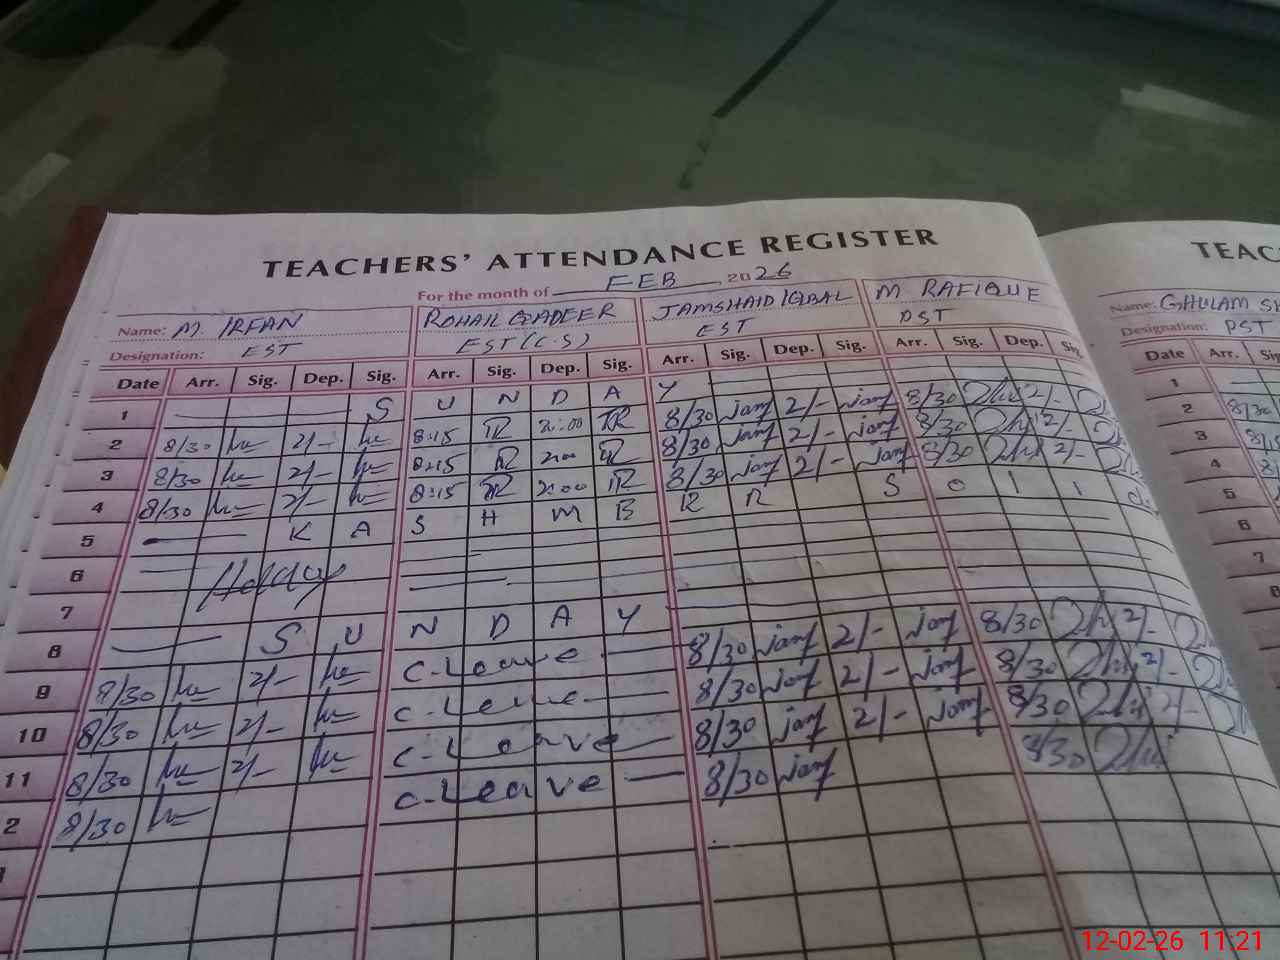 TEACHERS' ATTENDANCE REGISTER
For the month of FEB 2026
Name: M. IRFAN ROHAIL QADEER JAMSHAID IQBAL M. RAFIQUE
Designation: EST EST (C.S) EST PST
Date Arr. Sig. Dep. Sig. Arr. Sig. Dep. Sig. Arr. Sig. Dep. Sig. Arr. Sig. Dep. Sig.
1 S U N D A Y
2 8/30 2/- 8:15 TR 2:00 TR 8/30 jamf 2/- jamf 8/30 2/-
3 8/30 2/- 8:15 TR 2:00 TR 8/30 jamf 2/- jamf 8/30 2/-
4 8/30 2/- 8:15 TR 2:00 TR 8/30 jamf 2/- jamf 8/30 2/-
5 K A S H M B R R S O I I
6 Holiday
7
8 S U N D A Y
9 8/30 2/- C. Leave 8/30 jamf 2/- jamf 8/30 2/-
10 8/30 2/- C. Leave 8/30 jamf 2/- jamf 8/30 2/-
11 8/30 2/- C. Leave 8/30 jamf 2/- jamf 8/30 2/-
2 8/30 C. Leave 8/30 jamf 8/30
TEAC
Name: GHULAM SH
Designation: PST
Date Arr. Sig.
1
2 8/30
3
4
5
6
7
8
12-02-26 11:21